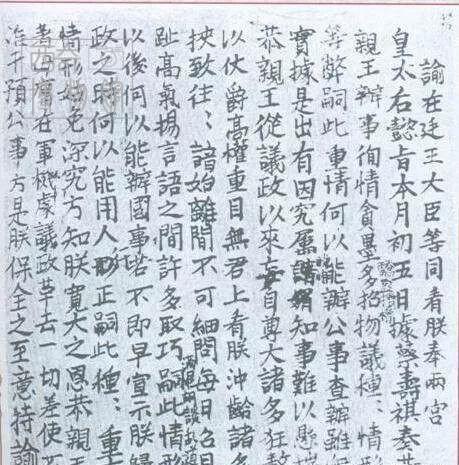 諭在廷王大臣等同看朕奉兩宮
皇太右懿旨本月初五日據蔡壽祺奏恭
親王辦事徇情貪墨多招物議種:情形
等弊嗣此重情何以能辦公事查辦雖
實據是出有因究屬知事難以懸揣
恭親王從議政以來妄自尊大諸多狂敖
以仗爵高權重目無君上看朕沖齡諸多
挾致往:諳始離間不可細問每日召見
趾高氣揚言語之間許多取巧嗣此情形
以後何以能辦國事若不即早宣示朕歸
政之時何以能用人行正嗣此種:重
情形姑免深究方知朕寬大之恩恭親王
著毋庸在軍機處議政革去一切差使不
准干預公事方是朕保全之至意特諭